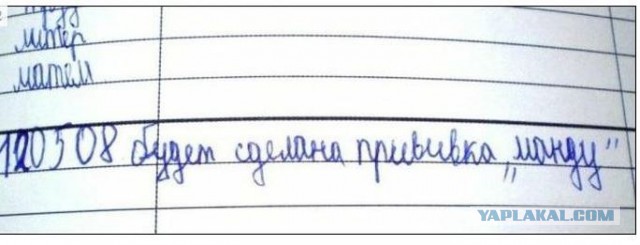 литер
матем
120508 будет сделана прививка „манду"
YAPLAKAL.COM